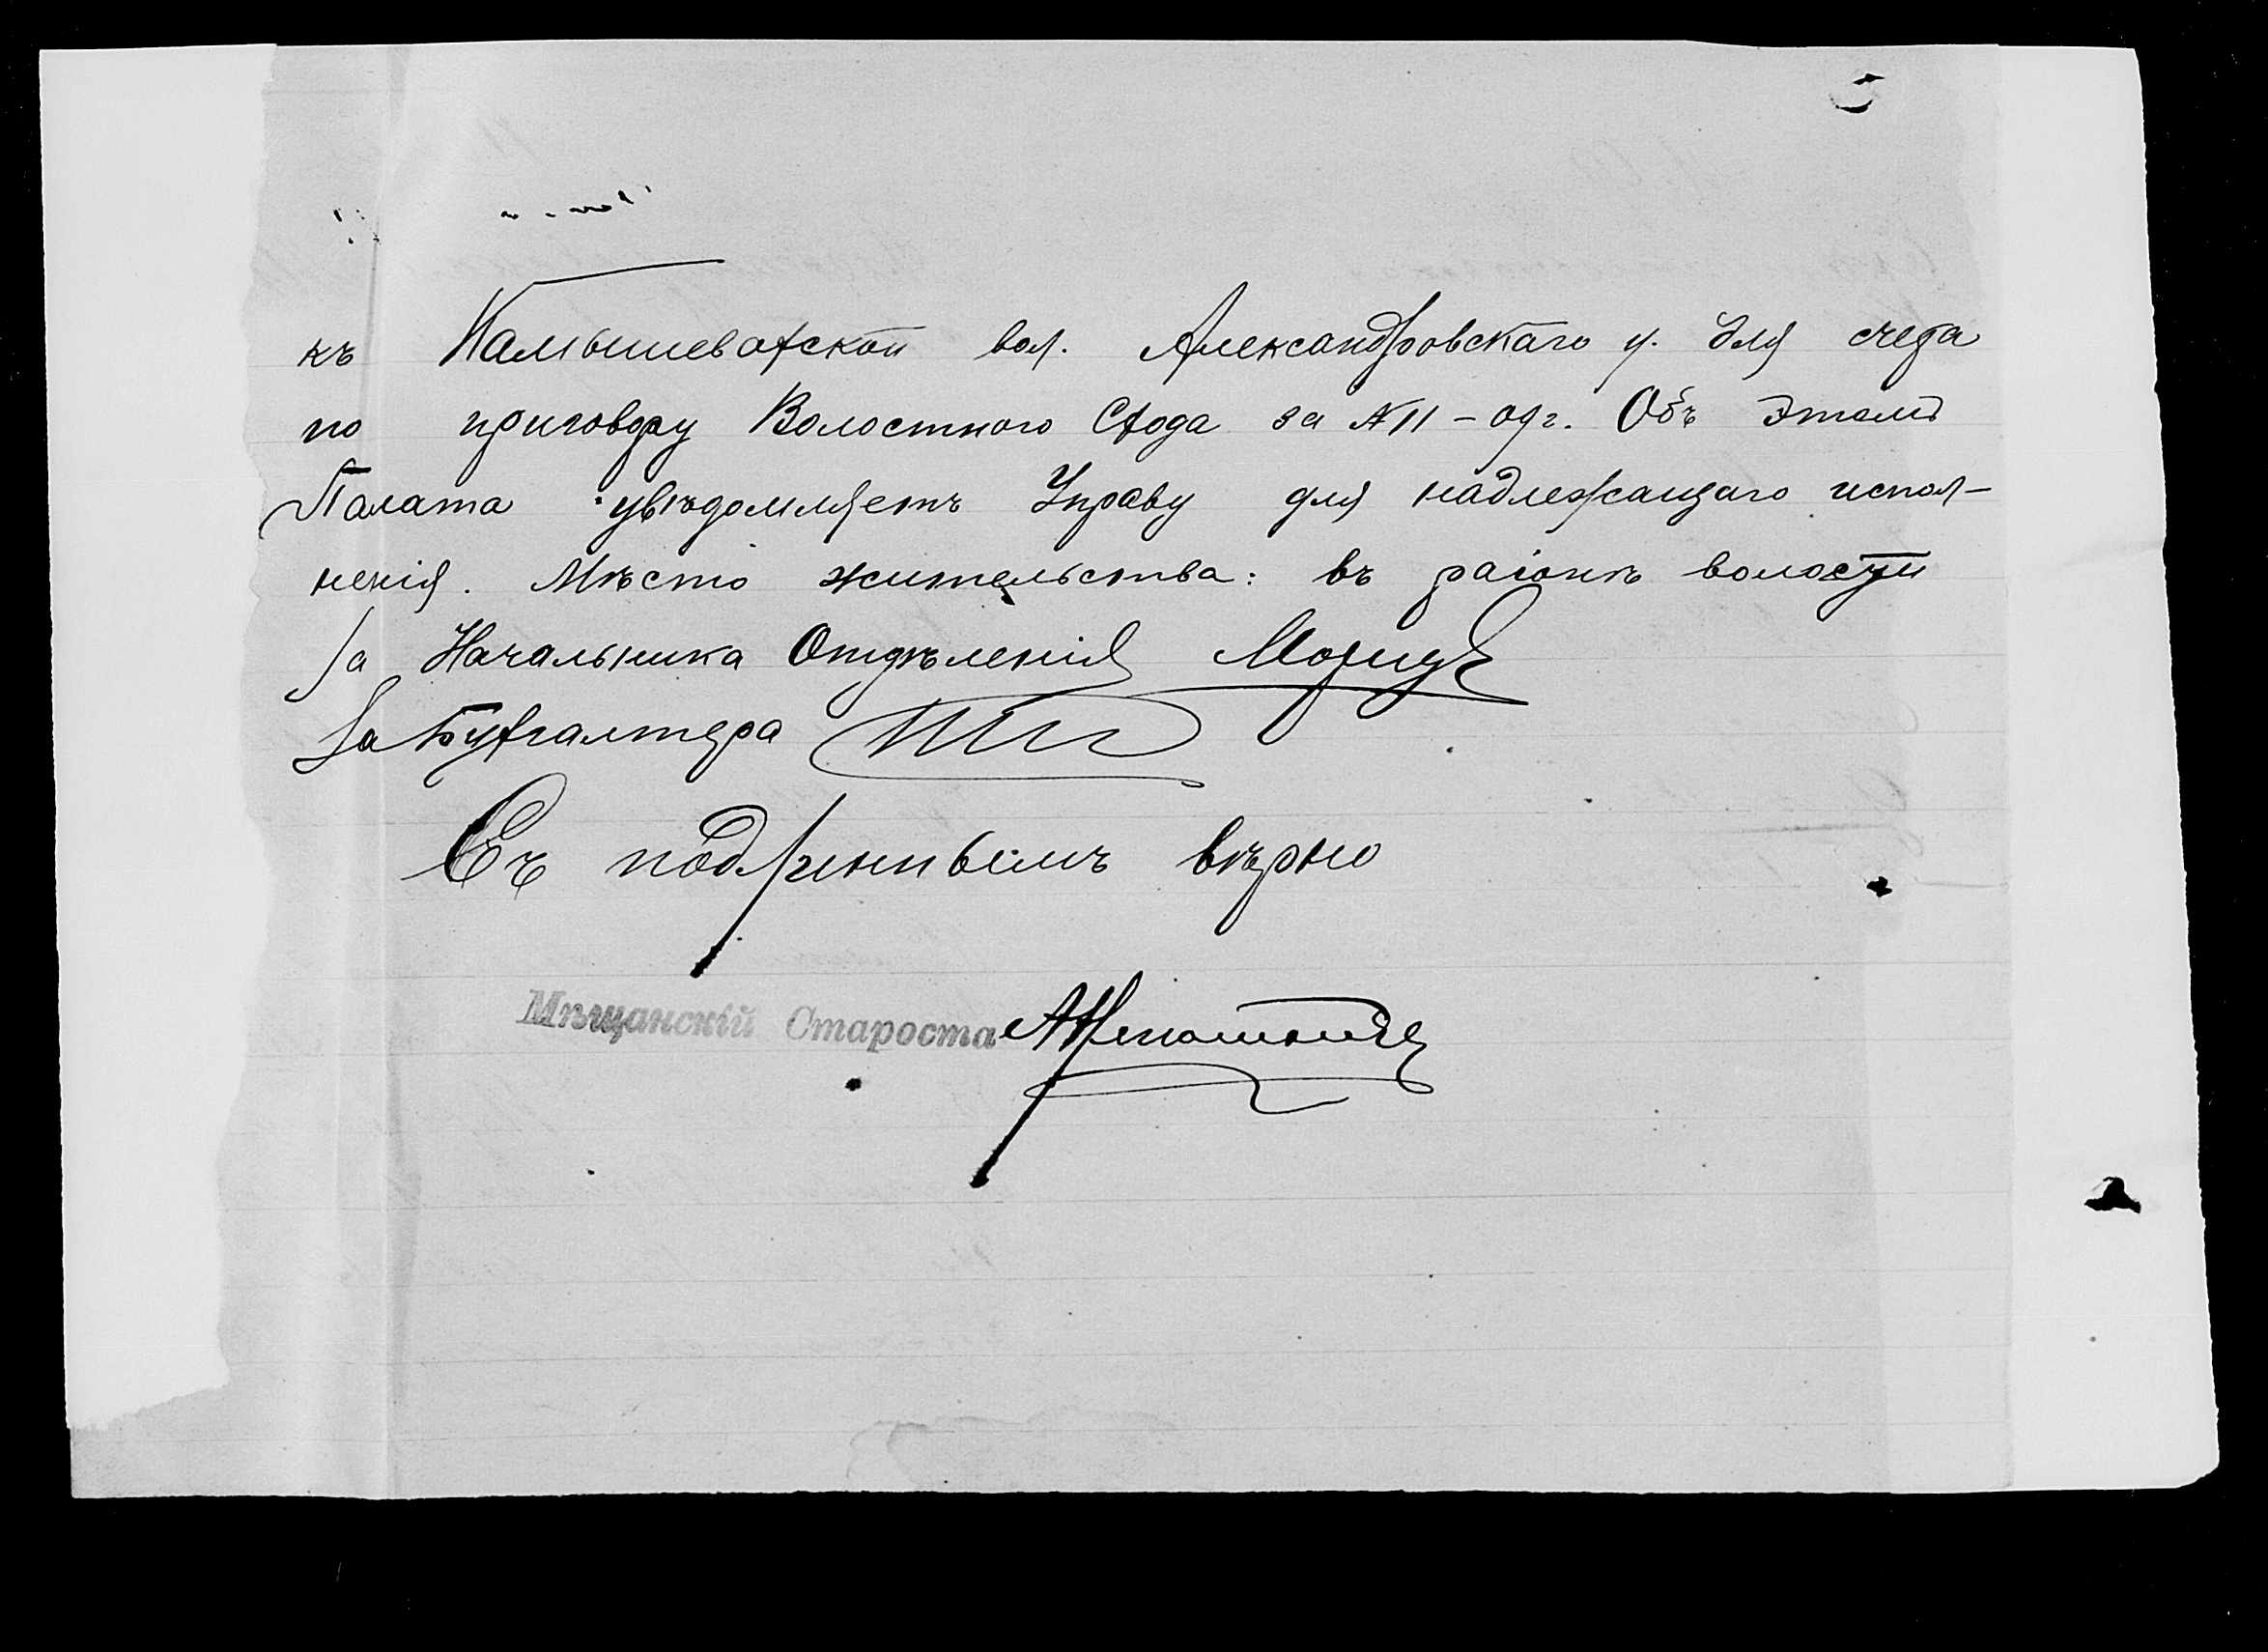 къ Камышеватской вол. Александровскаго у. для счета
по приговору Волостного Схода за № 11 – 09 г. Объ этомъ
Палата увѣдомляетъ Управу для надлежащаго испол-
ненія. Мѣсто жительства: въ раіонѣ волости
За Начальника Отдѣленія
За Бухгалтера
Съ подлиннымъ вѣрно
Мѣщанскій Староста